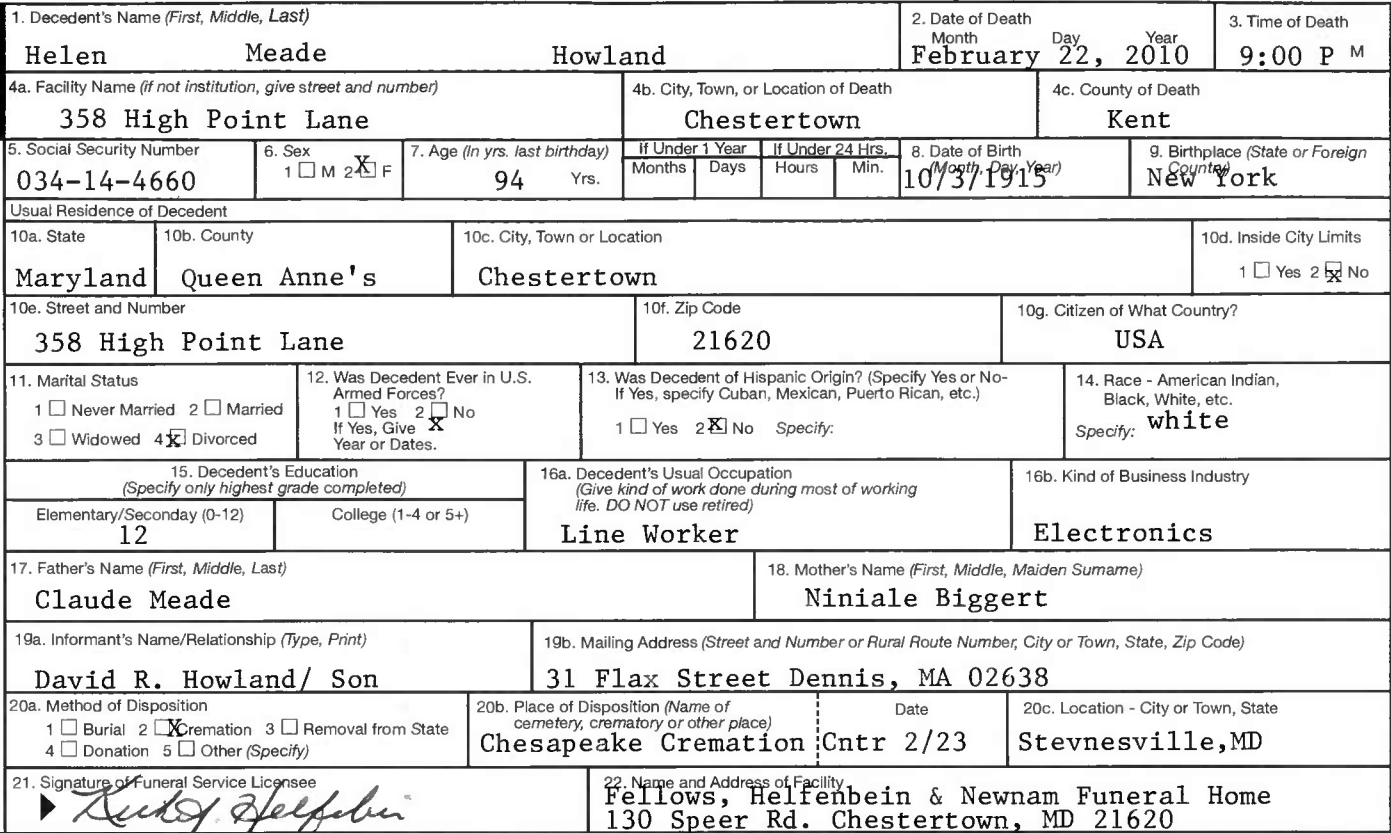 1. Decedent's Name (First, Middle, Last)
Helen Meade Howland
2. Date of Death
Month Day Year
February 22, 2010
3. Time of Death
9:00 P M
4a. Facility Name (if not institution, give street and number)
358 High Point Lane
4b. City, Town, or Location of Death
Chestertown
4c. County of Death
Kent
5. Social Security Number
034-14-4660
6. Sex
1 ☐ M 2 ☒ F
7. Age (In yrs. last birthday)
94 Yrs.
If Under 1 Year
Months Days
If Under 24 Hrs.
Hours Min.
8. Date of Birth
(Month, Day, Year)
10/3/1915
9. Birthplace (State or Foreign
Country)
New York
Usual Residence of Decedent
10a. State
Maryland
10b. County
Queen Anne's
10c. City, Town or Location
Chestertown
10d. Inside City Limits
1 ☐ Yes 2 ☒ No
10e. Street and Number
358 High Point Lane
10f. Zip Code
21620
10g. Citizen of What Country?
USA
11. Marital Status
1 ☐ Never Married 2 ☐ Married
3 ☐ Widowed 4 ☒ Divorced
12. Was Decedent Ever in U.S.
Armed Forces?
1 ☐ Yes 2 ☐ No
If Yes, Give X
Year or Dates.
13. Was Decedent of Hispanic Origin? (Specify Yes or No-
If Yes, specify Cuban, Mexican, Puerto Rican, etc.)
1 ☐ Yes 2 ☒ No Specify:
14. Race - American Indian,
Black, White, etc.
Specify: white
15. Decedent's Education
(Specify only highest grade completed)
Elementary/Seconday (0-12)
12
College (1-4 or 5+)
16a. Decedent's Usual Occupation
(Give kind of work done during most of working
life. DO NOT use retired)
Line Worker
16b. Kind of Business Industry
Electronics
17. Father's Name (First, Middle, Last)
Claude Meade
18. Mother's Name (First, Middle, Maiden Surname)
Niniale Biggert
19a. Informant's Name/Relationship (Type, Print)
David R. Howland/ Son
19b. Mailing Address (Street and Number or Rural Route Number, City or Town, State, Zip Code)
31 Flax Street Dennis, MA 02638
20a. Method of Disposition
1 ☐ Burial 2 ☒ Cremation 3 ☐ Removal from State
4 ☐ Donation 5 ☐ Other (Specify)
20b. Place of Disposition (Name of
cemetery, crematory or other place)
Date
Chesapeake Cremation Cntr 2/23
20c. Location - City or Town, State
Stevnesville,MD
21. Signature of Funeral Service Licensee
22. Name and Address of Facility
Fellows, Helfenbein & Newnam Funeral Home
130 Speer Rd. Chestertown, MD 21620